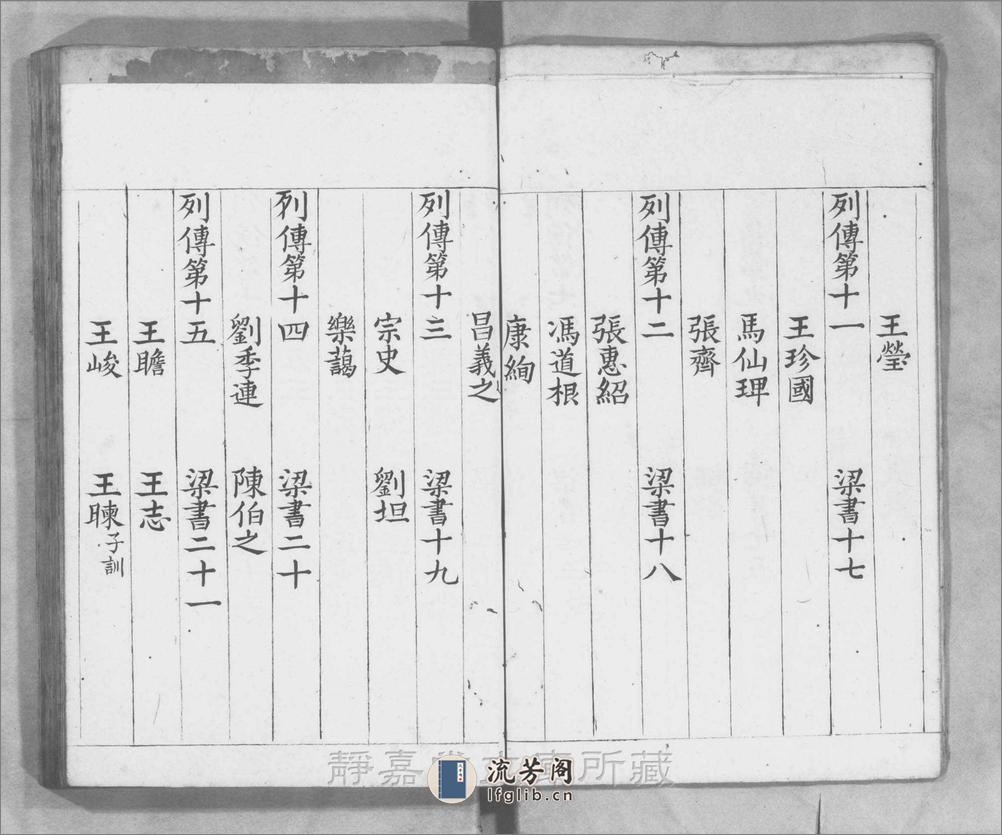 王瑩
列傳第十一 梁書十七
王珍國
馬仙琕
張齊
列傳第十二 梁書十八
張惠紹
馮道根
康絢
昌義之
列傳第十三 梁書十九
宗史 劉坦
樂藹
列傳第十四 梁書二十
劉季連 陳伯之
列傳第十五 梁書二十一
王瞻 王志
王峻 王暕子訓
靜嘉堂文庫所藏
流芳阁
lfglib.cn